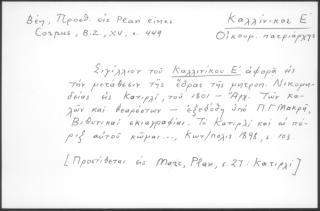 Βέη, Προσθ. εἰς Plan eines
Corpus, B.Z., XV, σ. 449
Καλλίνικος Ε΄
Οἰκουμ. πατριάρχης
Σιγίλλιον τοῦ Καλλινίκου Ε΄ ἀφορᾷ εἰς
τὴν μετάθεσιν τῆς ἕδρας τῆς μητροπ. Νικομη-
δείας εἰς Κατιρλί, τοῦ 1801 – Ἀρχ. Τῶν κα-
λῶν καὶ θεαρέστων – ἐξεδόθη ὑπὸ Π.Γ. Μακρῆ,
Βιθυνικαὶ σκιαγραφίαι. Τὸ Κατιρλὶ καὶ αἱ πέ-
ριξ αὐτοῦ κῶμαι..., Κων/πολις 1898, σ. 103
[Προστίθεται εἰς Marc, Plan, σ. 27 : Κατιρλί]